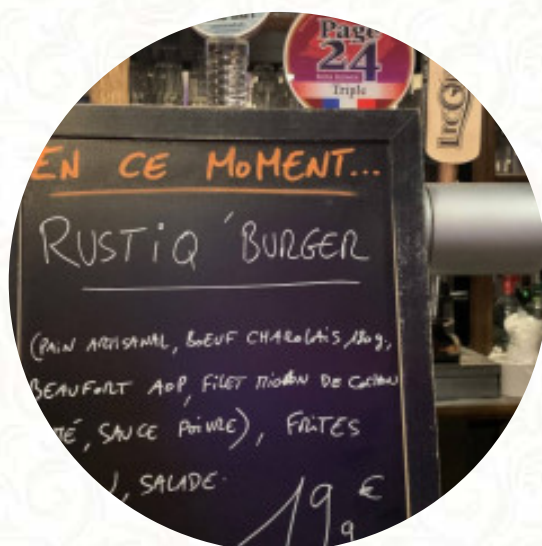 Page
24
Triple
EN CE MOMENT...
RUSTIQ'BURGER
(PAIN ARTISANAL, BOEUF CHAROLAIS 180g,
BEAUFORT AOP, FILET MIGNON DE COCHON
SAUCE POIVRE), FRITES
, SALADE.
19€
9